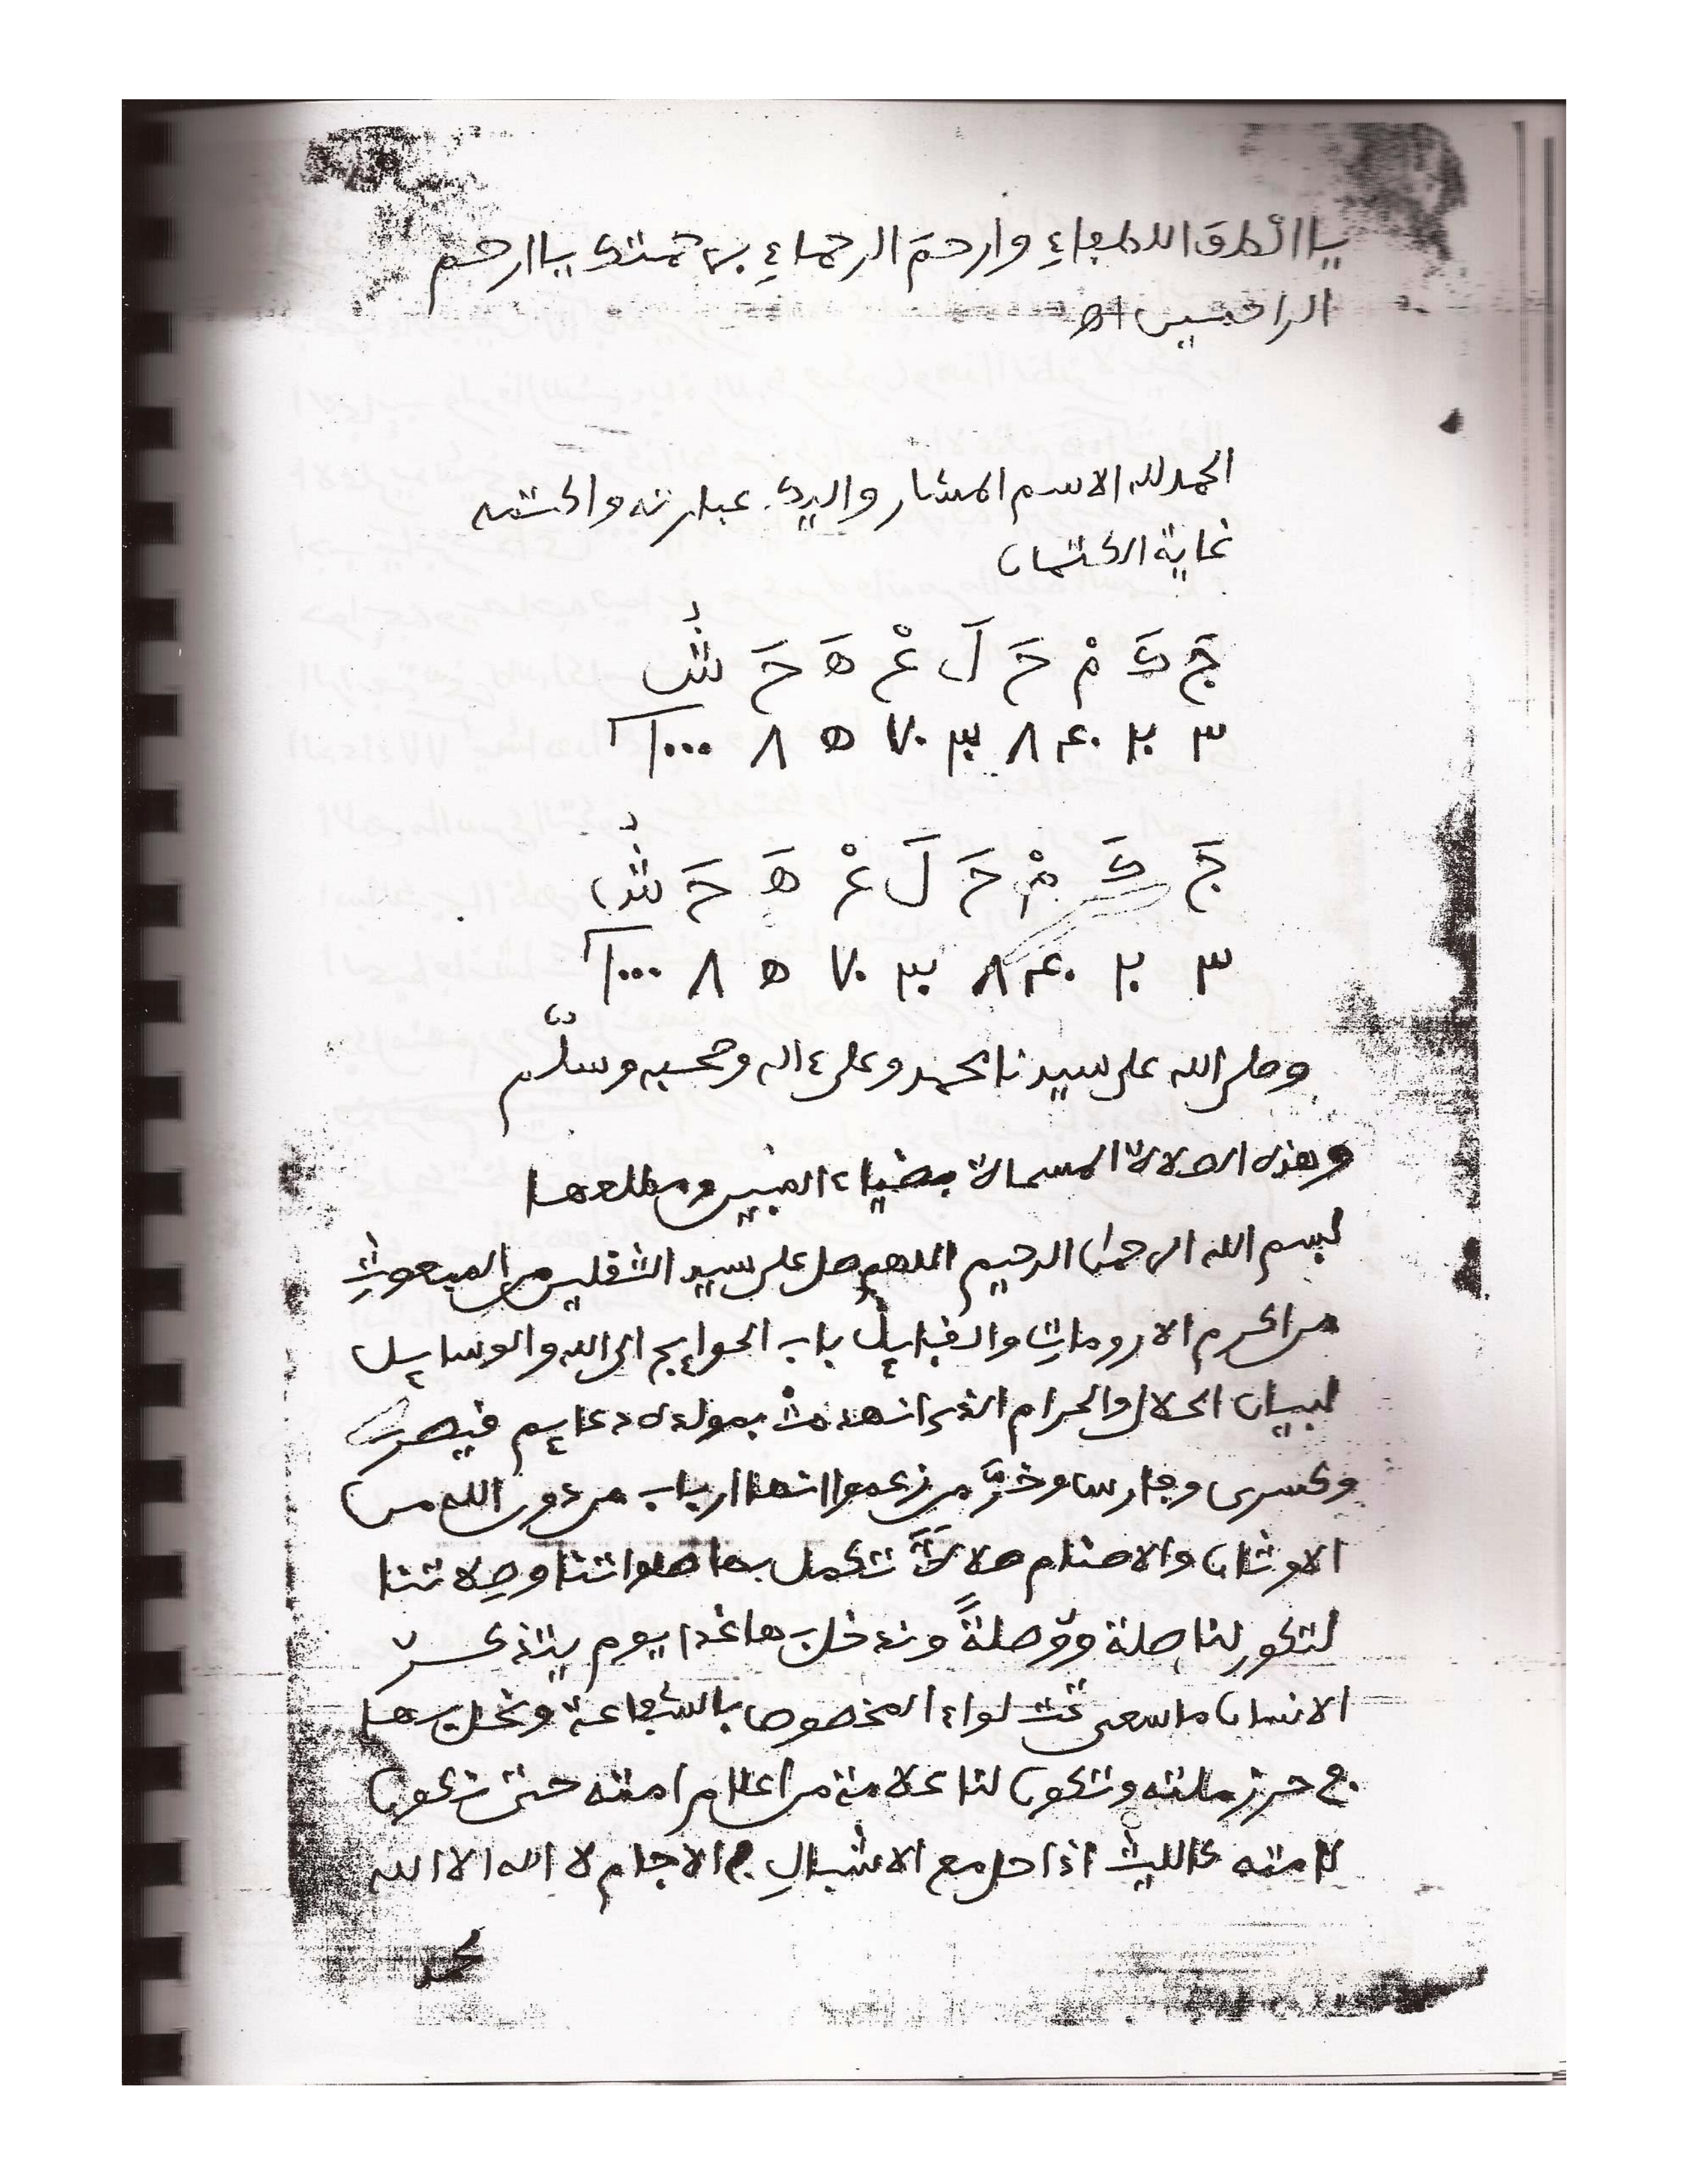 يا الطف اللطفاء وارحم الرحماء برحمتك يا ارحم
الراحمين اه
الحمد لله الاسم المشار واليك عبارته واكتمه
غاية الكتمان
جَ كَ مْ حَ لَ عْ هَ حَ شٌ
٣ ٢٠ ٤٠ ٨ ٣٠ ٧٠ ه ٨ ١٠٠٠
جَ كَ مْ حَ لَ عْ هَ حَ شٌ
٣ ٢٠ ٤٠ ٨ ٣٠ ٧٠ ه ٨ ١٠٠٠
وصلى الله على سيدنا محمد وعلى ءاله وصحبه وسلّم
وهذه الصلاة المسماة بضياء النبيين ومطلعها
بسم الله الرحمن الرحيم اللهم صل على سيد الثقلين المبعوث
من اكرم الارومات والقبايل باب الحوايج الى الله والوسايل
لبيان الحلال والحرام الذى انهدمت بمولده دعايم قيصر
وكسرى وفارسا وخرّ من زعموا انها ارباب من دون الله من
الاوثان والاصنام صلاةً تكمل بها صلواتنا وصلاتنا
لتكون لنا صلة ووصلةً وندخل بها غدا يوم يتذكر
الانسان ما سعى تحت لواء المخصوص بالشفاعة ونحل بها
فى حرز ملته وتكون لنا علامة من اعلام امته حتى نكون
لامته كالليث اذا حل مع الاشبالِ فى الاجام لا اله الا الله
محمد